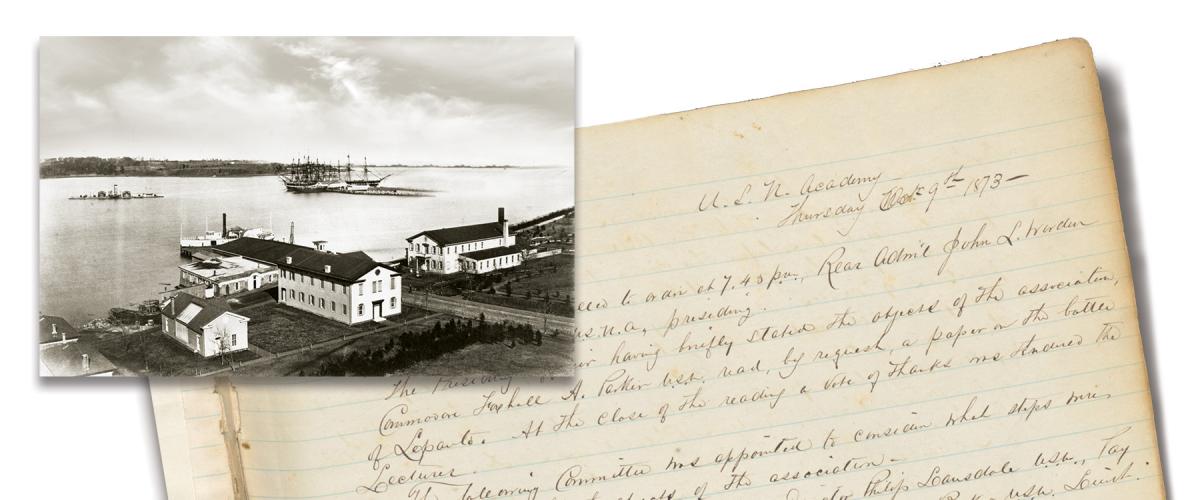 U. S. N. Academy
Thursday Oct: 9th 1873—
to order at 7.45 p.m., Rear Adm'l John L. Worden
U.S.N.A., presiding.
having briefly stated the objects of the association,
The Presiding
Commodore Foxhall A. Parker U.S.N. read, by request, a paper on the battle
of Lepanto. At the close of the reading a vote of thanks was tendered the
Lecturer.
The following Committee was appointed to consider what steps were
objects of the association—
Philip Lansdale U.S.N., Pay
U.S.N. Lieut.